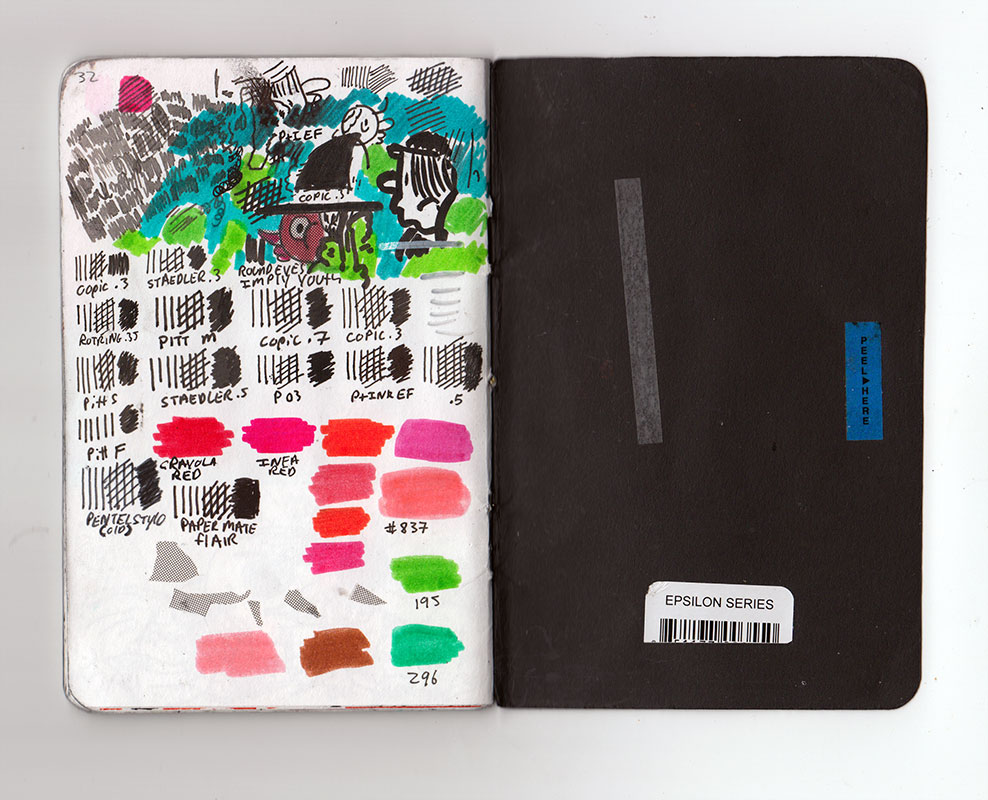 32
P+IEF
COPIC .5
COPIC .3
STAEDLER .3
ROUND EYES
IMPTY YOUTH
ROTRING .35
PITT M
COPIC .7
COPIC .3
Pitt S
STAEDLER .5
P 03
P+INK EF
.5
Pitt F
CRAYOLA
RED
INFA
RED
PENTEL STYLO
(OLD)
PAPER MATE
flAIR
#837
195
296
PEEL HERE
EPSILON SERIES